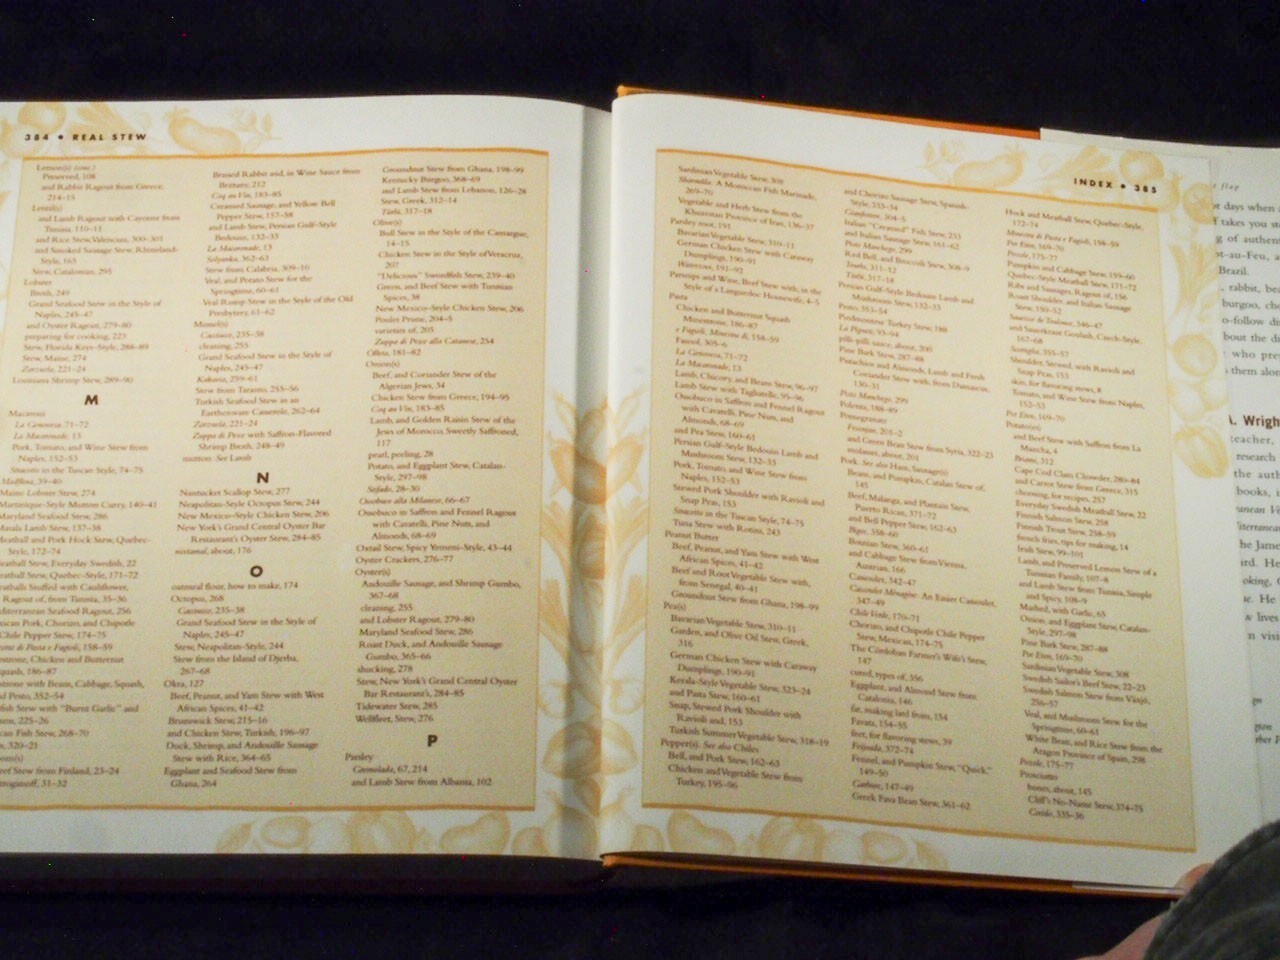 384 • REAL STEW
Lemon(s) (cont.)
Preserved, 108
and Rabbit Ragout from Greece,
214–15
Lentil(s)
and Lamb Ragout with Cayenne from
Tunisia, 110–11
and Rice Stew, Valencian, 300–301
and Smoked Sausage Stew, Rhineland-
Style, 165
Stew, Catalonian, 295
Lobster
Broth, 249
Grand Seafood Stew in the Style of
Naples, 245–47
and Oyster Ragout, 279–80
preparing for cooking, 223
Stew, Florida Keys–Style, 288–89
Stew, Maine, 274
Zarzuela, 221–24
Louisiana Shrimp Stew, 289–90
M
Macaroni
La Genovesa, 71–72
La Macaronade, 13
Pork, Tomato, and Wine Stew from
Naples, 152–53
Stracotto in the Tuscan Style, 74–75
39–40
Maine Lobster Stew, 274
Martinique-Style Mutton Curry, 140–41
Maryland Seafood Stew, 286
Masala Lamb Stew, 137–38
Meatball and Pork Hock Stew, Quebec-
Style, 172–74
Meatball Stew, Everyday Swedish, 22
Meatball Stew, Quebec-Style, 171–72
Meatballs Stuffed with Cauliflower,
Ragout of, from Tunisia, 35–36
Mediterranean Seafood Ragout, 256
Mexican Pork, Chorizo, and Chipotle
Chile Pepper Stew, 174–75
di Pasta e Fagioli, 158–59
Chicken and Butternut
Squash, 186–87
with Beans, Cabbage, Squash,
and Pesto, 352–54
Stew with "Burnt Garlic" and
225–26
Fish Stew, 268–70
320–21
Beef Stew from Finland, 23–24
Stroganoff, 31–32
Braised Rabbit and, in Wine Sauce from
Brittany, 212
Coq au Vin, 183–85
Creamed Sausage, and Yellow Bell
Pepper Stew, 157–58
and Lamb Stew, Persian Gulf–Style
Bedouin, 132–33
La Macaronade, 13
Solyanka, 362–63
Stew from Calabria, 309–10
Veal, and Potato Stew for the
Springtime, 60–61
Veal Rump Stew in the Style of the Old
Presbytery, 61–62
Mussel(s)
Cassoeula, 235–38
cleaning, 255
Grand Seafood Stew in the Style of
Naples, 245–47
Kakavia, 259–61
Stew from Taranto, 255–56
Turkish Seafood Stew in an
Earthenware Casserole, 262–64
Zarzuela, 221–24
Zuppa di Pesce with Saffron-Flavored
Shrimp Broth, 248–49
mutton. See Lamb
N
Nantucket Scallop Stew, 277
Neapolitan-Style Octopus Stew, 244
New Mexico–Style Chicken Stew, 206
New York's Grand Central Oyster Bar
Restaurant's Oyster Stew, 284–85
nixtamal, about, 176
O
oatmeal flour, how to make, 174
Octopus, 268
235–38
Grand Seafood Stew in the Style of
Naples, 245–47
Stew, Neapolitan-Style, 244
Stew from the Island of Djerba,
267–68
Okra, 127
Beef, Peanut, and Yam Stew with West
African Spices, 41–42
Brunswick Stew, 215–16
and Chicken Stew, Turkish, 196–97
Duck, Shrimp, and Andouille Sausage
Stew with Rice, 364–65
Eggplant and Seafood Stew from
Ghana, 264
Groundnut Stew from Ghana, 198–99
Kentucky Burgoo, 368–69
and Lamb Stew from Lebanon, 126–28
Stew, Greek, 312–14
Türlü, 317–18
Olive(s)
Bull Stew in the Style of the Camargue,
14–15
Chicken Stew in the Style of Veracruz,
207
"Delicious" Swordfish Stew, 239–40
Green, and Beef Stew with Tunisian
Spices, 38
New Mexico–Style Chicken Stew, 206
Poulet Proune, 204–5
varieties of, 205
Zuppa di Pesce alla Catanese, 254
Olleta, 181–82
Onion(s)
Beef, and Coriander Stew of the
Algerian Jews, 34
Chicken Stew from Greece, 194–95
Coq au Vin, 183–85
Lamb, and Golden Raisin Stew of the
Jews of Morocco, Sweetly Saffroned,
117
pearl, peeling, 28
Potato, and Eggplant Stew, Catalan-
Style, 297–98
Stifado, 28–30
Ossobuco alla Milanese, 66–67
Ossobuco in Saffron and Fennel Ragout
with Cavatelli, Pine Nuts, and
Almonds, 68–69
Oxtail Stew, Spicy Yemeni–Style, 43–44
Oyster Crackers, 276–77
Oyster(s)
Andouille Sausage, and Shrimp Gumbo,
367–68
cleaning, 255
and Lobster Ragout, 279–80
Maryland Seafood Stew, 286
Roast Duck, and Andouille Sausage
Gumbo, 365–66
shucking, 278
Stew, New York's Grand Central Oyster
Bar Restaurant's, 284–85
Tidewater Stew, 285
Wellfleet, Stew, 276
P
Parsley
Gremolada, 67, 214
and Lamb Stew from Albania, 102
INDEX • 385
Sardinian Vegetable Stew, 308
Sharmula: A Moroccan Fish Marinade,
269–70
Vegetable and Herb Stew from the
Khuzestan Province of Iran, 136–37
Parsley root, 191
Bavarian Vegetable Stew, 310–11
German Chicken Stew with Caraway
Dumplings, 190–91
Waterzooi, 191–92
Parsnips and Wine, Beef Stew with, in the
Style of a Languedoc Housewife, 4–5
Pasta
Chicken and Butternut Squash
Minestrone, 186–87
e Fagioli, Minestra di, 158–59
Fasoul, 305–6
La Genovesa, 71–72
La Macaronade, 13
Lamb, Chicory, and Beans Stew, 96–97
Lamb Stew with Tagliatelle, 95–96
Ossobuco in Saffron and Fennel Ragout
with Cavatelli, Pine Nuts, and
Almonds, 68–69
and Pea Stew, 160–61
Persian Gulf–Style Bedouin Lamb and
Mushroom Stew, 132–33
Pork, Tomato, and Wine Stew from
Naples, 152–53
Stewed Pork Shoulder with Ravioli and
Snap Peas, 153
Stracotto in the Tuscan Style, 74–75
Tuna Stew with Rotini, 243
Peanut Butter
Beef, Peanut, and Yam Stew with West
African Spices, 41–42
Beef and Root Vegetable Stew with,
from Senegal, 40–41
Groundnut Stew from Ghana, 198–99
Pea(s)
Bavarian Vegetable Stew, 310–11
Garden, and Olive Oil Stew, Greek,
316
German Chicken Stew with Caraway
Dumplings, 190–91
Kerala-Style Vegetable Stew, 323–24
and Pasta Stew, 160–61
Snap, Stewed Pork Shoulder with
Ravioli and, 153
Turkish Summer Vegetable Stew, 318–19
Pepper(s). See also Chiles
Bell, and Pork Stew, 162–63
Chicken and Vegetable Stew from
Turkey, 195–96
and Chorizo Sausage Stew, Spanish-
Style, 333–34
304–5
Italian "Creamed" Fish Stew, 253
and Italian Sausage Stew, 161–62
Pisto Manchego, 299
Red Bell, and Broccoli Stew, 308–9
Tourlu, 311–12
Türlü, 317–18
Persian Gulf–Style Bedouin Lamb and
Mushroom Stew, 132–33
Pesto, 353–54
Piedmontese Turkey Stew, 188
La Pignata, 93–94
pili-pili sauce, about, 200
Pine Bark Stew, 287–88
Pistachios and Almonds, Lamb and Fresh
Coriander Stew with, from Damascus,
130–31
Pisto Manchego, 299
Polenta, 188–89
Pomegranate
Fesenjan, 201–2
and Green Bean Stew from Syria, 322–23
molasses, about, 201
Pork. See also Ham, Sausage(s)
Bean, and Pumpkin, Catalan Stew of,
145
Beef, Malanga, and Plantain Stew,
Puerto Rican, 371–72
and Bell Pepper Stew, 162–63
Bigos, 358–60
Bosnian Stew, 360–61
and Cabbage Stew from Vienna,
Austrian, 166
Cassoulet, 342–47
Cassoulet Ménagère: An Easier Cassoulet,
347–49
Chile Verde, 170–71
Chorizo, and Chipotle Chile Pepper
Stew, Mexican, 174–75
The Córdoban Farmer's Wife's Stew,
147
cured, types of, 356
Eggplant, and Almond Stew from
Catalonia, 146
fat, making lard from, 154
Favata, 154–55
feet, for flavoring stews, 39
Feijoada, 372–74
Fennel, and Pumpkin Stew, "Quick,"
149–50
Garbure, 147–49
Greek Fava Bean Stew, 361–62
Hock and Meatball Stew, Quebec-Style,
172–74
Minestra di Pasta e Fagioli, 158–59
Pot Eten, 169–70
Pozole, 175–77
Pumpkin and Cabbage Stew, 159–60
Quebec-Style Meatball Stew, 171–72
Ribs and Sausages, Ragout of, 156
Roast Shoulder, and Italian Sausage
Stew, 150–52
Saucisse de Toulouse, 346–47
and Sauerkraut Goulash, Czech-Style,
167–68
355–57
Shoulder, Stewed, with Ravioli and
Snap Peas, 153
skin, for flavoring stews, 8
Tomato, and Wine Stew from Naples,
152–53
Pot Eten, 169–70
Potato(es)
and Beef Stew with Saffron from La
Mancha, 4
Briami, 312
Cape Cod Clam Chowder, 280–84
and Carrot Stew from Greece, 315
choosing, for recipes, 257
Everyday Swedish Meatball Stew, 22
Finnish Salmon Stew, 258
Finnish Trout Stew, 258–59
french fries, tips for making, 14
Irish Stew, 99–101
Lamb, and Preserved Lemon Stew of a
Tunisian Family, 107–8
and Lamb Stew from Tunisia, Simple
and Spicy, 108–9
Mashed, with Garlic, 63
Onion, and Eggplant Stew, Catalan-
Style, 297–98
Pine Bark Stew, 287–88
Pot Eten, 169–70
Sardinian Vegetable Stew, 308
Swedish Sailor's Beef Stew, 22–23
Swedish Salmon Stew from Växjö,
256–57
Veal, and Mushroom Stew for the
Springtime, 60–61
White Bean, and Rice Stew from the
Aragon Province of Spain, 298
Pozole, 175–77
Prosciutto
bones, about, 145
Cliff's No-Name Stew, 374–75
335–36
flap
days when
takes you
of authen
ot-au-Feu, a
Brazil.
, rabbit, bea
burgoo, cho
o-follow di
bout the di
who pre
them alon
A. Wrigh
teacher,
research
the auth
books, i
anean Ve
iterranean
he Jame
ard. He
oking, G
ne. He
lives
n visi